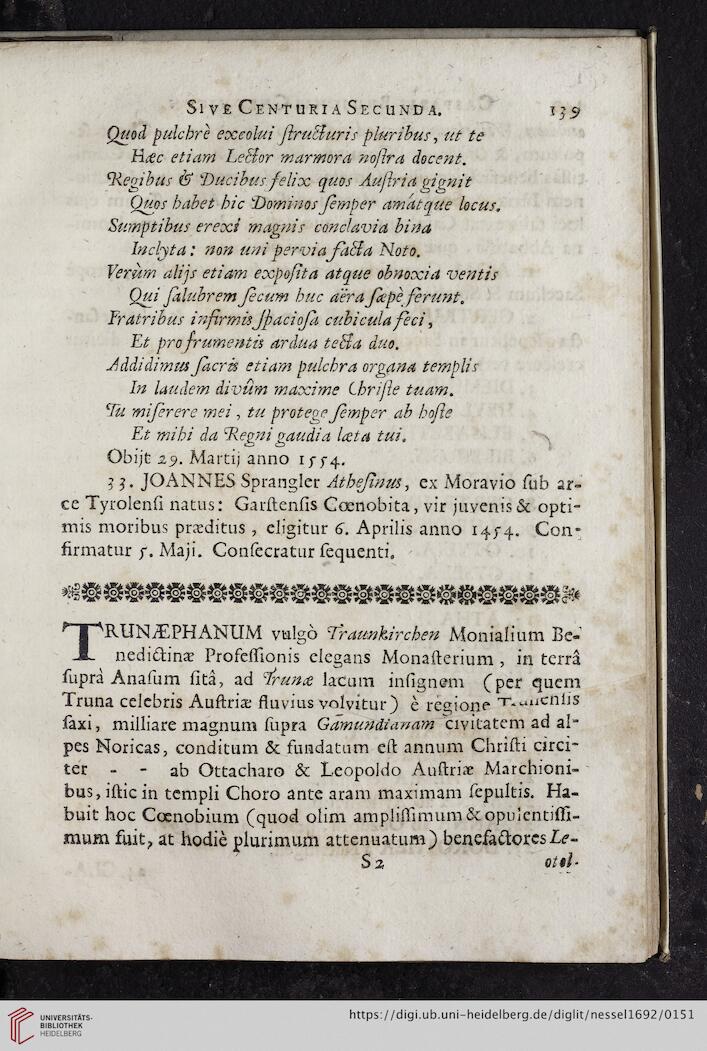 SIVE CENTURIA SECUNDA. 139
Quod pulchrè excolui ſtructuris pluribus, ut te
Hæc etiam Lector marmora noſtra docent.
Regibus & Ducibus felix quos Auſtria gignit
Quos habet hic Dominos ſemper amátque locus.
Sumptibus erexi magnis conclavia bina
Inclyta: non uni pervia facta Noto.
Verùm alijs etiam expoſita atque obnoxia ventis
Qui ſalubrem ſecum huc aëra ſæpè ferunt.
Fratribus infirmis ſpacioſa cubicula feci,
Et pro frumentis ardua tecta duo.
Addidimus ſacris etiam pulchra organa templis
In laudem divûm maxime Chriſte tuam.
Tu miſerere mei, tu protege ſemper ab hoſte
Et mihi da Regni gaudia læta tui.
Obijt 29. Martij anno 1554.
33. JOANNES Sprangler Atheſinus, ex Moravio ſub ar-
ce Tyrolenſi natus: Garſtenſis Cœnobita, vir juvenis & opti-
mis moribus præditus, eligitur 6. Aprilis anno 1454. Con-
firmatur 5. Maji. Conſecratur ſequenti.
TRUNÆPHANUM vulgò Traunkirchen Monialium Be-
nedictinæ Profeſſionis elegans Monaſterium, in terrâ
ſuprà Anaſum ſitâ, ad Trunæ lacum inſignem (per quem
Truna celebris Auſtriæ fluvius volvitur) è regione
ſaxi, milliare magnum ſupra Gamundianam civitatem ad al-
pes Noricas, conditum & fundatum eſt annum Chriſti circi-
ter - - ab Ottacharo & Leopoldo Auſtriæ Marchioni-
bus, iſtic in templi Choro ante aram maximam ſepultis. Ha-
buit hoc Cœnobium (quod olim ampliſſimum & opulentiſſi-
mum fuit, at hodiè plurimum attenuatum) benefactores Le-
S 2 otol-
UNIVERSITÄTS-
BIBLIOTHEK
HEIDELBERG
https://digi.ub.uni-heidelberg.de/diglit/nessel1692/0151